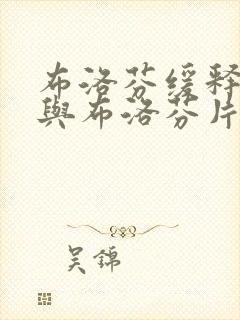 布洛芬缓释
與布洛芬片
吴錦